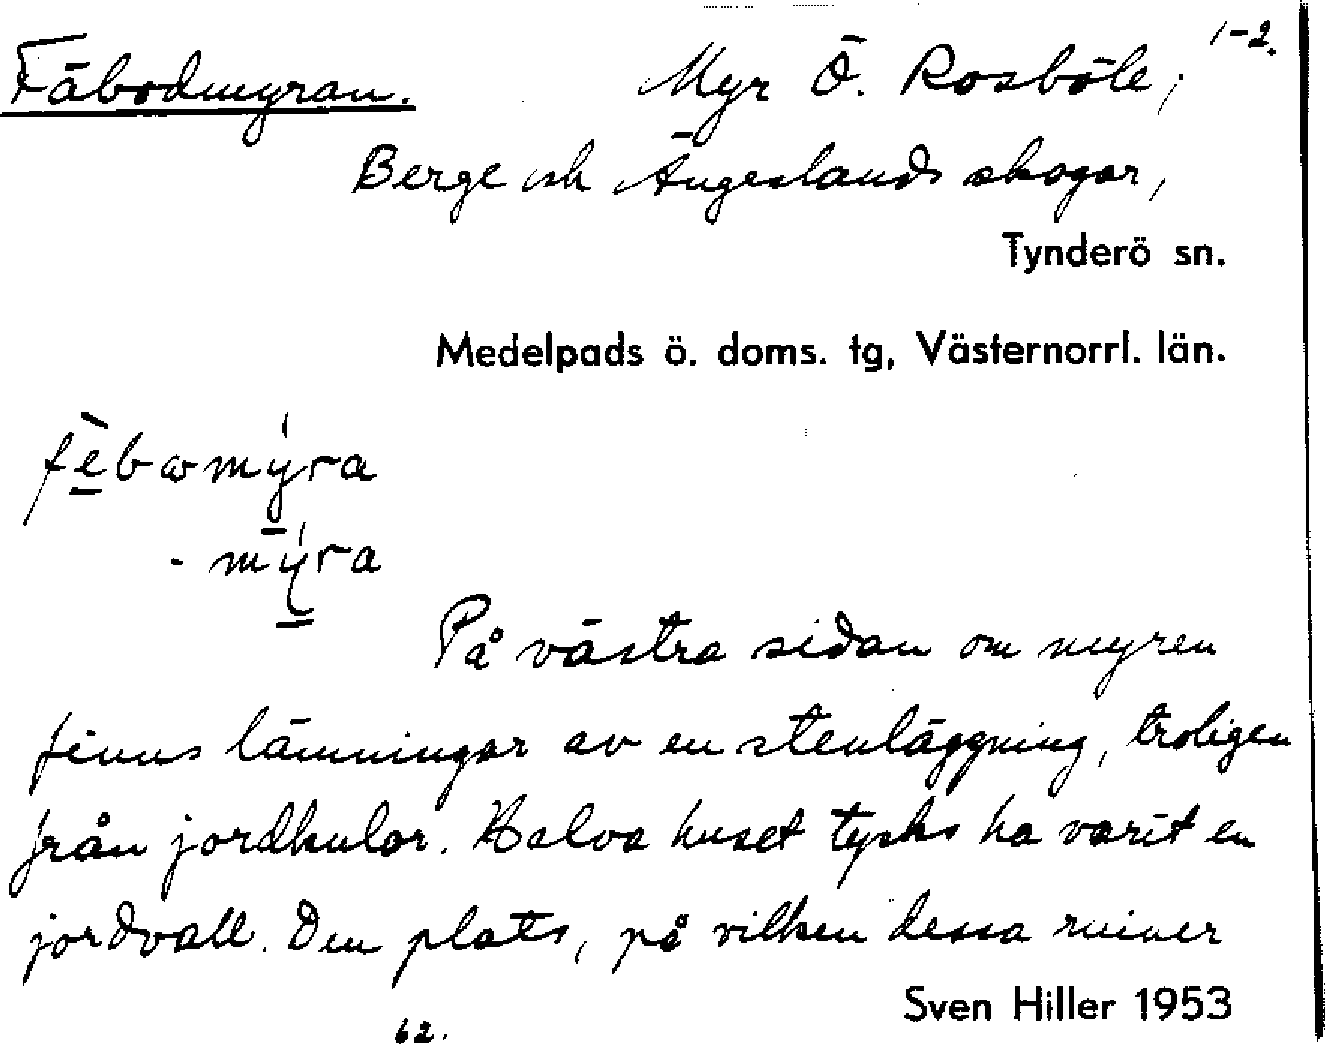 1-2.
Fäbodmyran. Myr Ö. Rosböle,
Berge och Ängeslands skogar,
Tynderö sn.
Medelpads ö. doms. tg, Västernorrl. län.
fèbωmýra
- mýra
På västra sidan om myren
finns lämningar av en stenläggning, troligen
från jordkulor. Halva huset tycks ha varit en
jordvall. Den plats, på vilken dessa ruiner
Sven Hiller 1953
62.